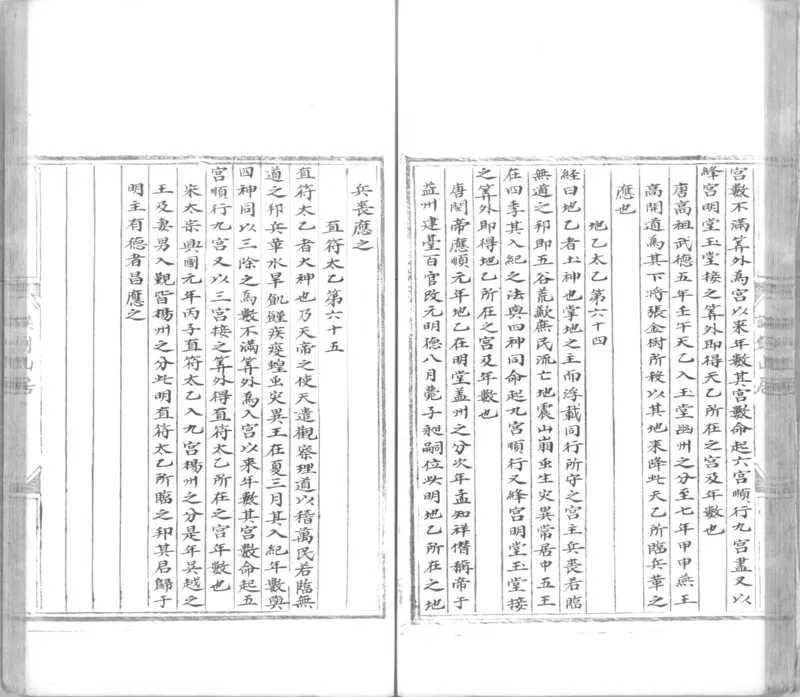 宮數不滿筭外為宮以來年數其宮數命起六宮順行九宮盡又以
絳宮明堂玉堂接之筭外即得天乙所在之宮及年數也
唐高祖武德五年壬午天乙入玉堂幽州之分至七年甲申燕王
高開道為其下將張金樹所殺以其地來降此天乙所臨兵革之
應也
地乙太乙第六十四
經曰地乙者土神也掌地之主而浮載同行所守之宮主兵喪若臨
無道之邦即五谷荒歉庶民流亡地震山崩重生災異常居中五王
在四季其入紀之法與四神同命起九宮順行又絳宮明堂玉堂接
之筭外即得地乙所在之宮及年數也
唐閔帝應順元年地乙在明堂益州之分次年孟知祥僭稱帝于
益州建臺百官改元明德八月薨子昶嗣位此明地乙所在之地
兵喪應之
直符太乙第六十五
直符太乙者火神也乃天帝之使天遣觀察理道以稽萬民若臨無
道之邦兵革水旱飢饉疾疫蝗虫災異王在夏三月其入紀年數與
四神同以三除之為數不滿筭外為入宮以來年數其宮數命起五
宮順行九宮又以三宮接之筭外得直符太乙所在之宮年數也
宋太宗興國元年丙子直符太乙入九宮楊州之分是年吳越之
王及妻男入覲皆楊州之分此明直符太乙所臨之邦其君歸于
明主有德者昌應之